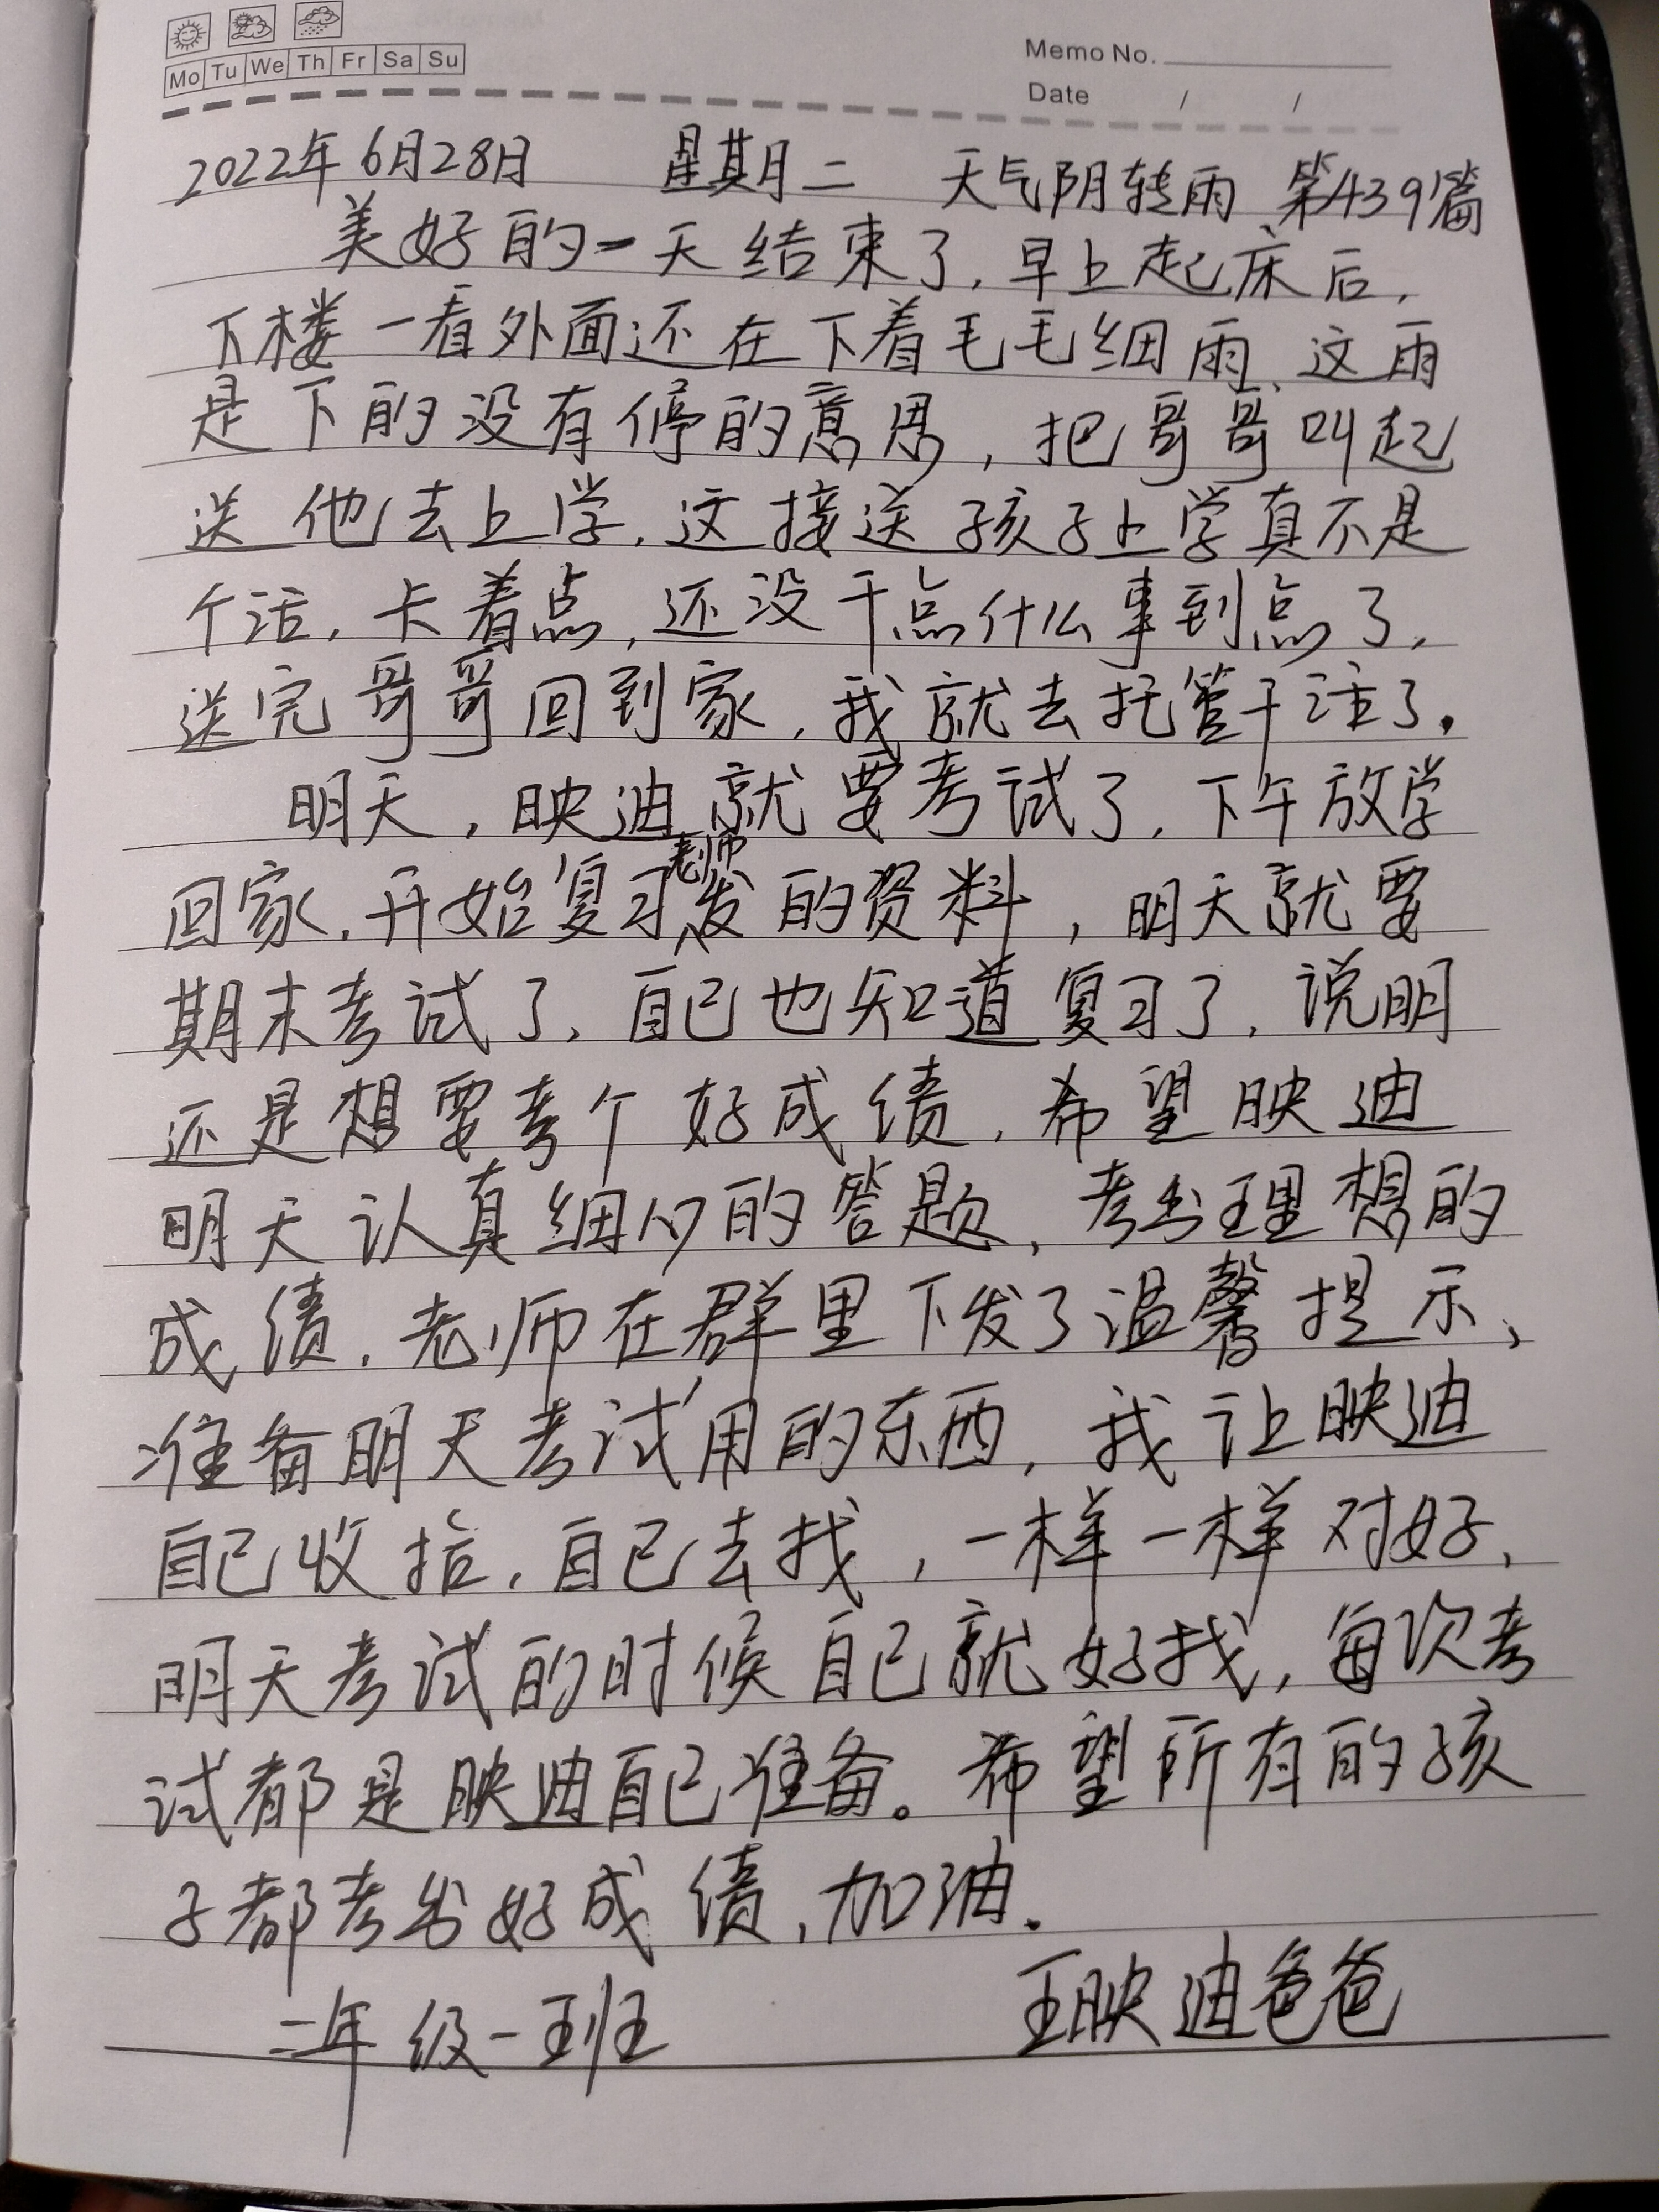 Mo Tu We Th Fr Sa Su
Memo No.
Date / /
2022年6月28日 星期二 天气阴转雨 第439篇
美好的一天结束了,早上起床后,
下楼一看外面还在下着毛毛细雨、这雨
是下的没有停的意思,把哥哥叫起
送他去上学,这接送孩子上学真不是
个活,卡着点,还没干点什么事到点了,
送完哥哥回到家,我就去托管干活了.
明天,映迪就要考试了,下午放学
回家,开始复习老师发的资料,明天就要
期末考试了、自己也知道复习了,说明
还是想要考个好成绩,希望映迪
明天认真细心的答题,考出理想的
成绩,老师在群里下发了温馨提示、
准备明天考试用的东西,我让映迪
自己收拾,自己去找,一样一样对好、
明天考试的时候自己就好找,每次考
试都是映迪自己准备。希望所有的孩
子都考出好成绩,加油.
二年级一班 王映迪爸爸